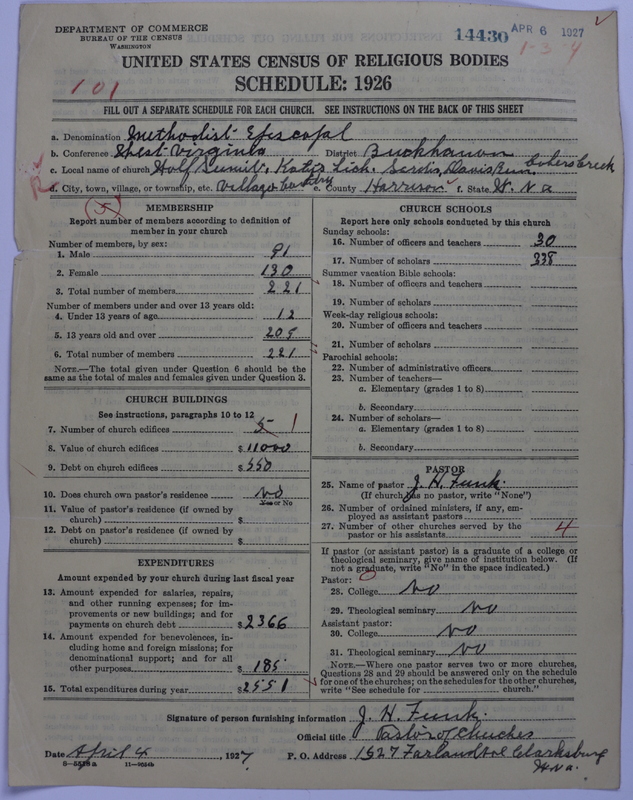 DEPARTMENT OF COMMERCE
BUREAU OF THE CENSUS
WASHINGTON
14430 APR 6 1927
1-3-4
UNITED STATES CENSUS OF RELIGIOUS BODIES
SCHEDULE: 1926
101
FILL OUT A SEPARATE SCHEDULE FOR EACH CHURCH. SEE INSTRUCTIONS ON THE BACK OF THIS SHEET
a. Denomination Methodist Episcopal
b. Conference West Virginia District Buckhannon
c. Local name of church Wolf Sumit, Katys Lick, Sardis, Davis Run, Cobers Creek
d. City, town, village, or township, etc. Village Country e. County Harrison f. State W. Va
5
MEMBERSHIP
Report number of members according to definition of
member in your church
Number of members, by sex:
1. Male 91
2. Female 130
3. Total number of members 221
Number of members under and over 13 years old:
4. Under 13 years of age 12
5. 13 years old and over 209
6. Total number of members 221
NOTE.—The total given under Question 6 should be the
same as the total of males and females given under Question 3.
CHURCH BUILDINGS
See instructions, paragraphs 10 to 12
7. Number of church edifices 5 1
8. Value of church edifices $ 11000
9. Debt on church edifices $ 550
10. Does church own pastor's residence No
Yes or No
11. Value of pastor's residence (if owned by
church) $
12. Debt on pastor's residence (if owned by
church) $
EXPENDITURES
Amount expended by your church during last fiscal year
13. Amount expended for salaries, repairs,
and other running expenses; for im-
provements or new buildings; and for
payments on church debt $ 2366
14. Amount expended for benevolences, in-
cluding home and foreign missions; for
denominational support; and for all
other purposes $ 185
15. Total expenditures during year $ 2551
CHURCH SCHOOLS
Report here only schools conducted by this church
Sunday schools:
16. Number of officers and teachers 30
17. Number of scholars 338
Summer vacation Bible schools:
18. Number of officers and teachers
19. Number of scholars
Week-day religious schools:
20. Number of officers and teachers
21. Number of scholars
Parochial schools:
22. Number of administrative officers
23. Number of teachers—
a. Elementary (grades 1 to 8)
b. Secondary
24. Number of scholars—
a. Elementary (grades 1 to 8)
b. Secondary
PASTOR
25. Name of pastor J. H. Funk.
(If church has no pastor, write "None")
26. Number of ordained ministers, if any, em-
ployed as assistant pastors
27. Number of other churches served by the
pastor or his assistants 4
If pastor (or assistant pastor) is a graduate of a college or
theological seminary, give name of institution below. (If
not a graduate, write "No" in the space indicated.)
Pastor: 0
28. College No
29. Theological seminary No
Assistant pastor:
30. College No
31. Theological seminary No
NOTE.—Where one pastor serves two or more churches,
Questions 28 and 29 should be answered only on the schedule
for one of the churches; on the schedules for the other churches,
write "See schedule for church."
Signature of person furnishing information J. H. Funk.
Official title Pastor of Chuches
Date April 4, 1927 P. O. Address 1527 Farland ave Clarksburg
W. Va.
8—5579 a 11—9514b